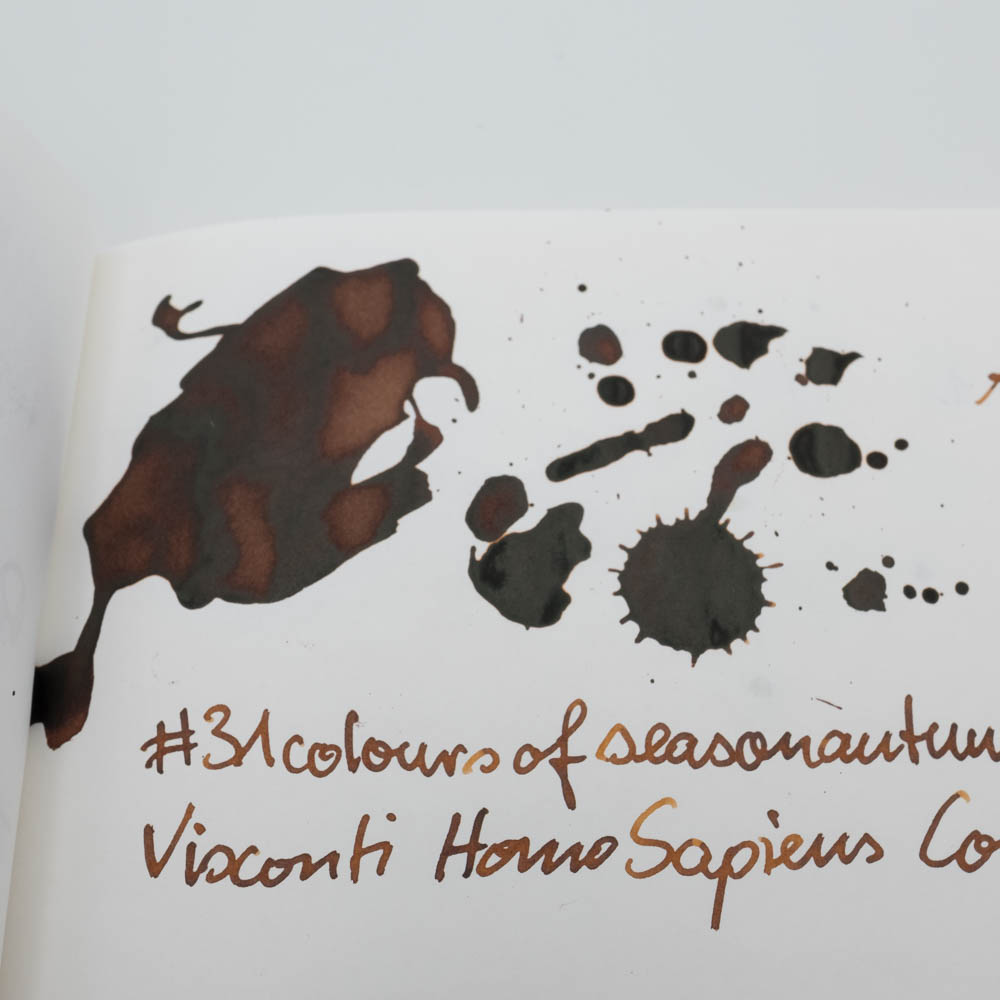 #31coloursofseasonautum
Visconti Homo Sapiens Co